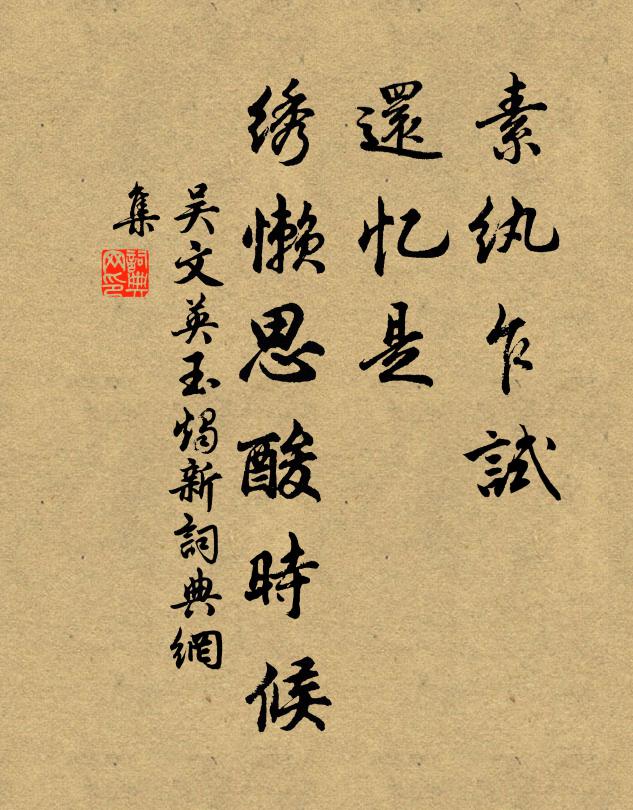 素纨乍試
還忆是
绣懒思酸時候
吴文英玉燭新詞典網
集
詞典
网印